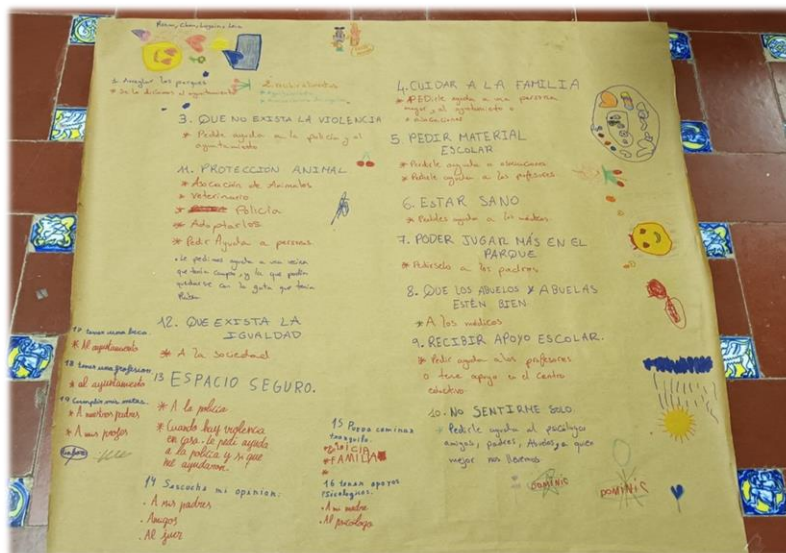 1. Arreglar los parques
* Se lo decimos al ayuntamiento
3. QUE NO EXISTA LA VIOLENCIA
* Pedir ayuda a la policía y al
ayuntamiento
11. PROTECCIÓN ANIMAL
* Asociación de Animales
* Veterinario
* Policía
* Adoptarlos
* Pedir Ayuda a personas
• Le pedimos ayuda a una vecina
que tenía campo, y la que podía
quedarse con la gata que tenía
12. QUE EXISTA LA
IGUALDAD
* A la sociedad
13 ESPACIO SEGURO.
* A la policía
* Cuando hay violencia
en casa. le pedí ayuda
a la policía y si que
me ayudaron.
14 Se escuche mi opinion.
• A mis padres
• Amigos
• Al juez
17 tener una beca.
* Al ayuntamiento
18 tener una profesion
* al ayuntamiento
19 Cumplir mis metas.
* A nuestros padres
* A mis profes
15 Poder caminar
tranquila.
* FAMILIA
16 tener apoyo
Psicologico.
• A mi madre
• Al psicólogo
4. CUIDAR A LA FAMILIA
* PEDIRle ayuda a una persona
mayor, al ayuntamiento o
asociaciones
5. PEDIR MATERIAL
ESCOLAR
* Pedirle ayuda a asociaciones
* Pedirle ayuda a los profesores
6. ESTAR SANO
* Pedirles ayuda a los médicos
7. PODER JUGAR MÁS EN EL
PARQUE
* Pedírselo a los padres
8. QUE LOS ABUELOS Y ABUELAS
ESTÉN BIEN
* A los médicos
9. RECIBIR APOYO ESCOLAR.
* Pedir ayuda a los profesores
o tener apoyo en el centro
educativo
10. NO SENTIRME SOLO
* Pedirle ayuda al psicólogo
amigos, padres, Abuelos, a quien
mejor nos llevemos
DOMINIC
DOMINIC